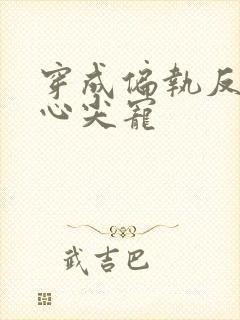 穿成偏執反
心尖寵
武吉巴